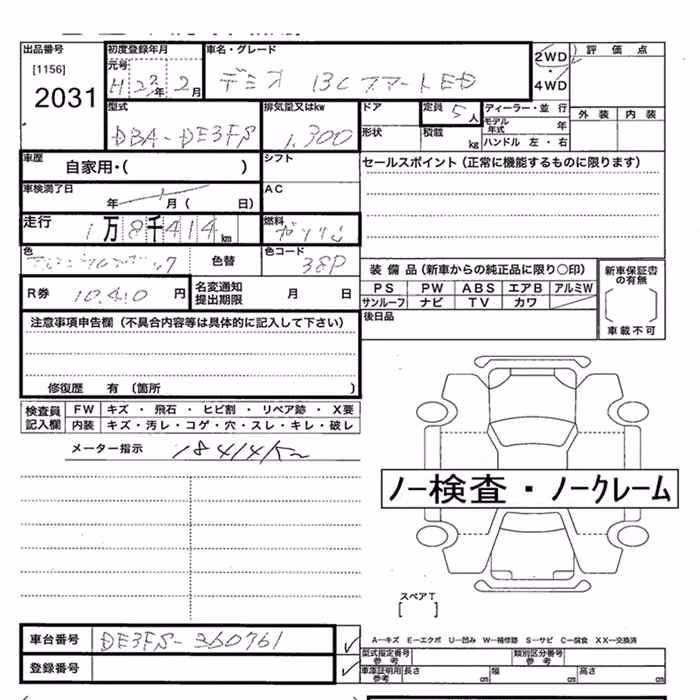 出品番号
[1156]
2031
初度登録年月
元号
H 22年 2月
車名・グレード
デミオ 13C スマートED
2WD
・
4WD
評価点
外装 内装
型式
DBA-DE3FS
排気量又はkw
1,300
ドア
形状
定員 5人
積載 kg
ディーラー・並行
モデル年式 年
ハンドル 左・右
車歴
自家用・( )
シフト
セールスポイント（正常に機能するものに限ります）
車検満了日
年 月( 日)
AC
走行
1万8千414km
燃料
ガソリン
色
色替
色コード
38P
R券 10,410 円
名変通知
提出期限
月 日
装備品（新車からの純正品に限り○印）
PS PW ABS エアB アルミW
サンルーフ ナビ TV カワ
後日品
新車保証書
の有無
車載不可
注意事項申告欄（不具合内容等は具体的に記入して下さい）
修復歴 有（箇所 ）
検査員
記入欄
FW キズ・飛石・ヒビ割・リペア跡・X要
内装 キズ・汚レ・コゲ・穴・スレ・キレ・破レ
メーター指示 18414km
ノー検査・ノークレーム
スペアT
[ ]
車台番号 DE3FS-360761
登録番号
A－キズ E－エクボ U－凹み W－補修跡 S－サビ C－腐食 XX－交換済
型式指定番号
参考
類別区分番号
参考
車庫証明用
参考
長さ cm 幅 cm 高さ cm